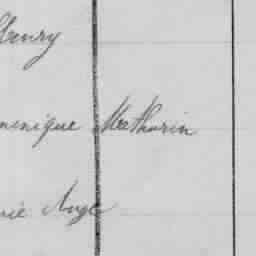 Henry
minique Mathurin
nie Ange